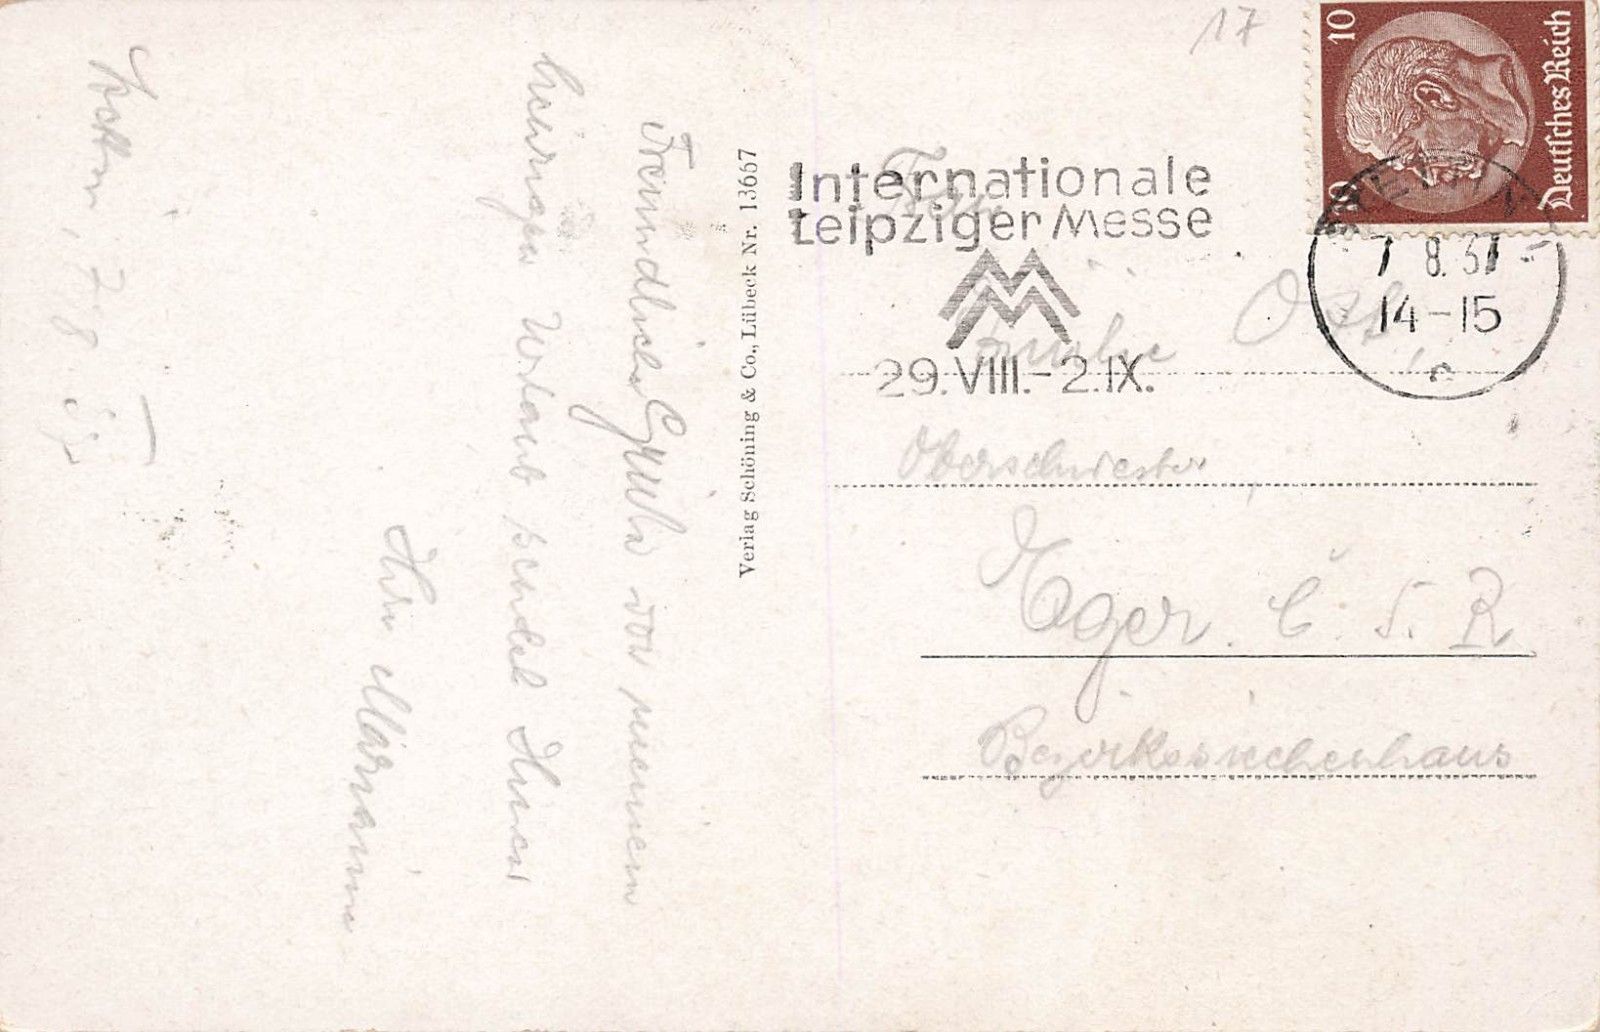 Stettin, 7. 8. 37
Freundliche Grüße von meinem
heurigen Urlaub sendet Ihnen
Ihre Marianne
Verlag Schöning & Co., Lübeck Nr. 13657
17
10 10
Deutsches Reich
STETTIN
7 8.37
14-15
c
Internationale
Leipziger Messe
MM
29.VIII.-2.IX.
Frau
Amalie
Oberschwester
Eger. Č. S. R.
Bezirkssiechenhaus